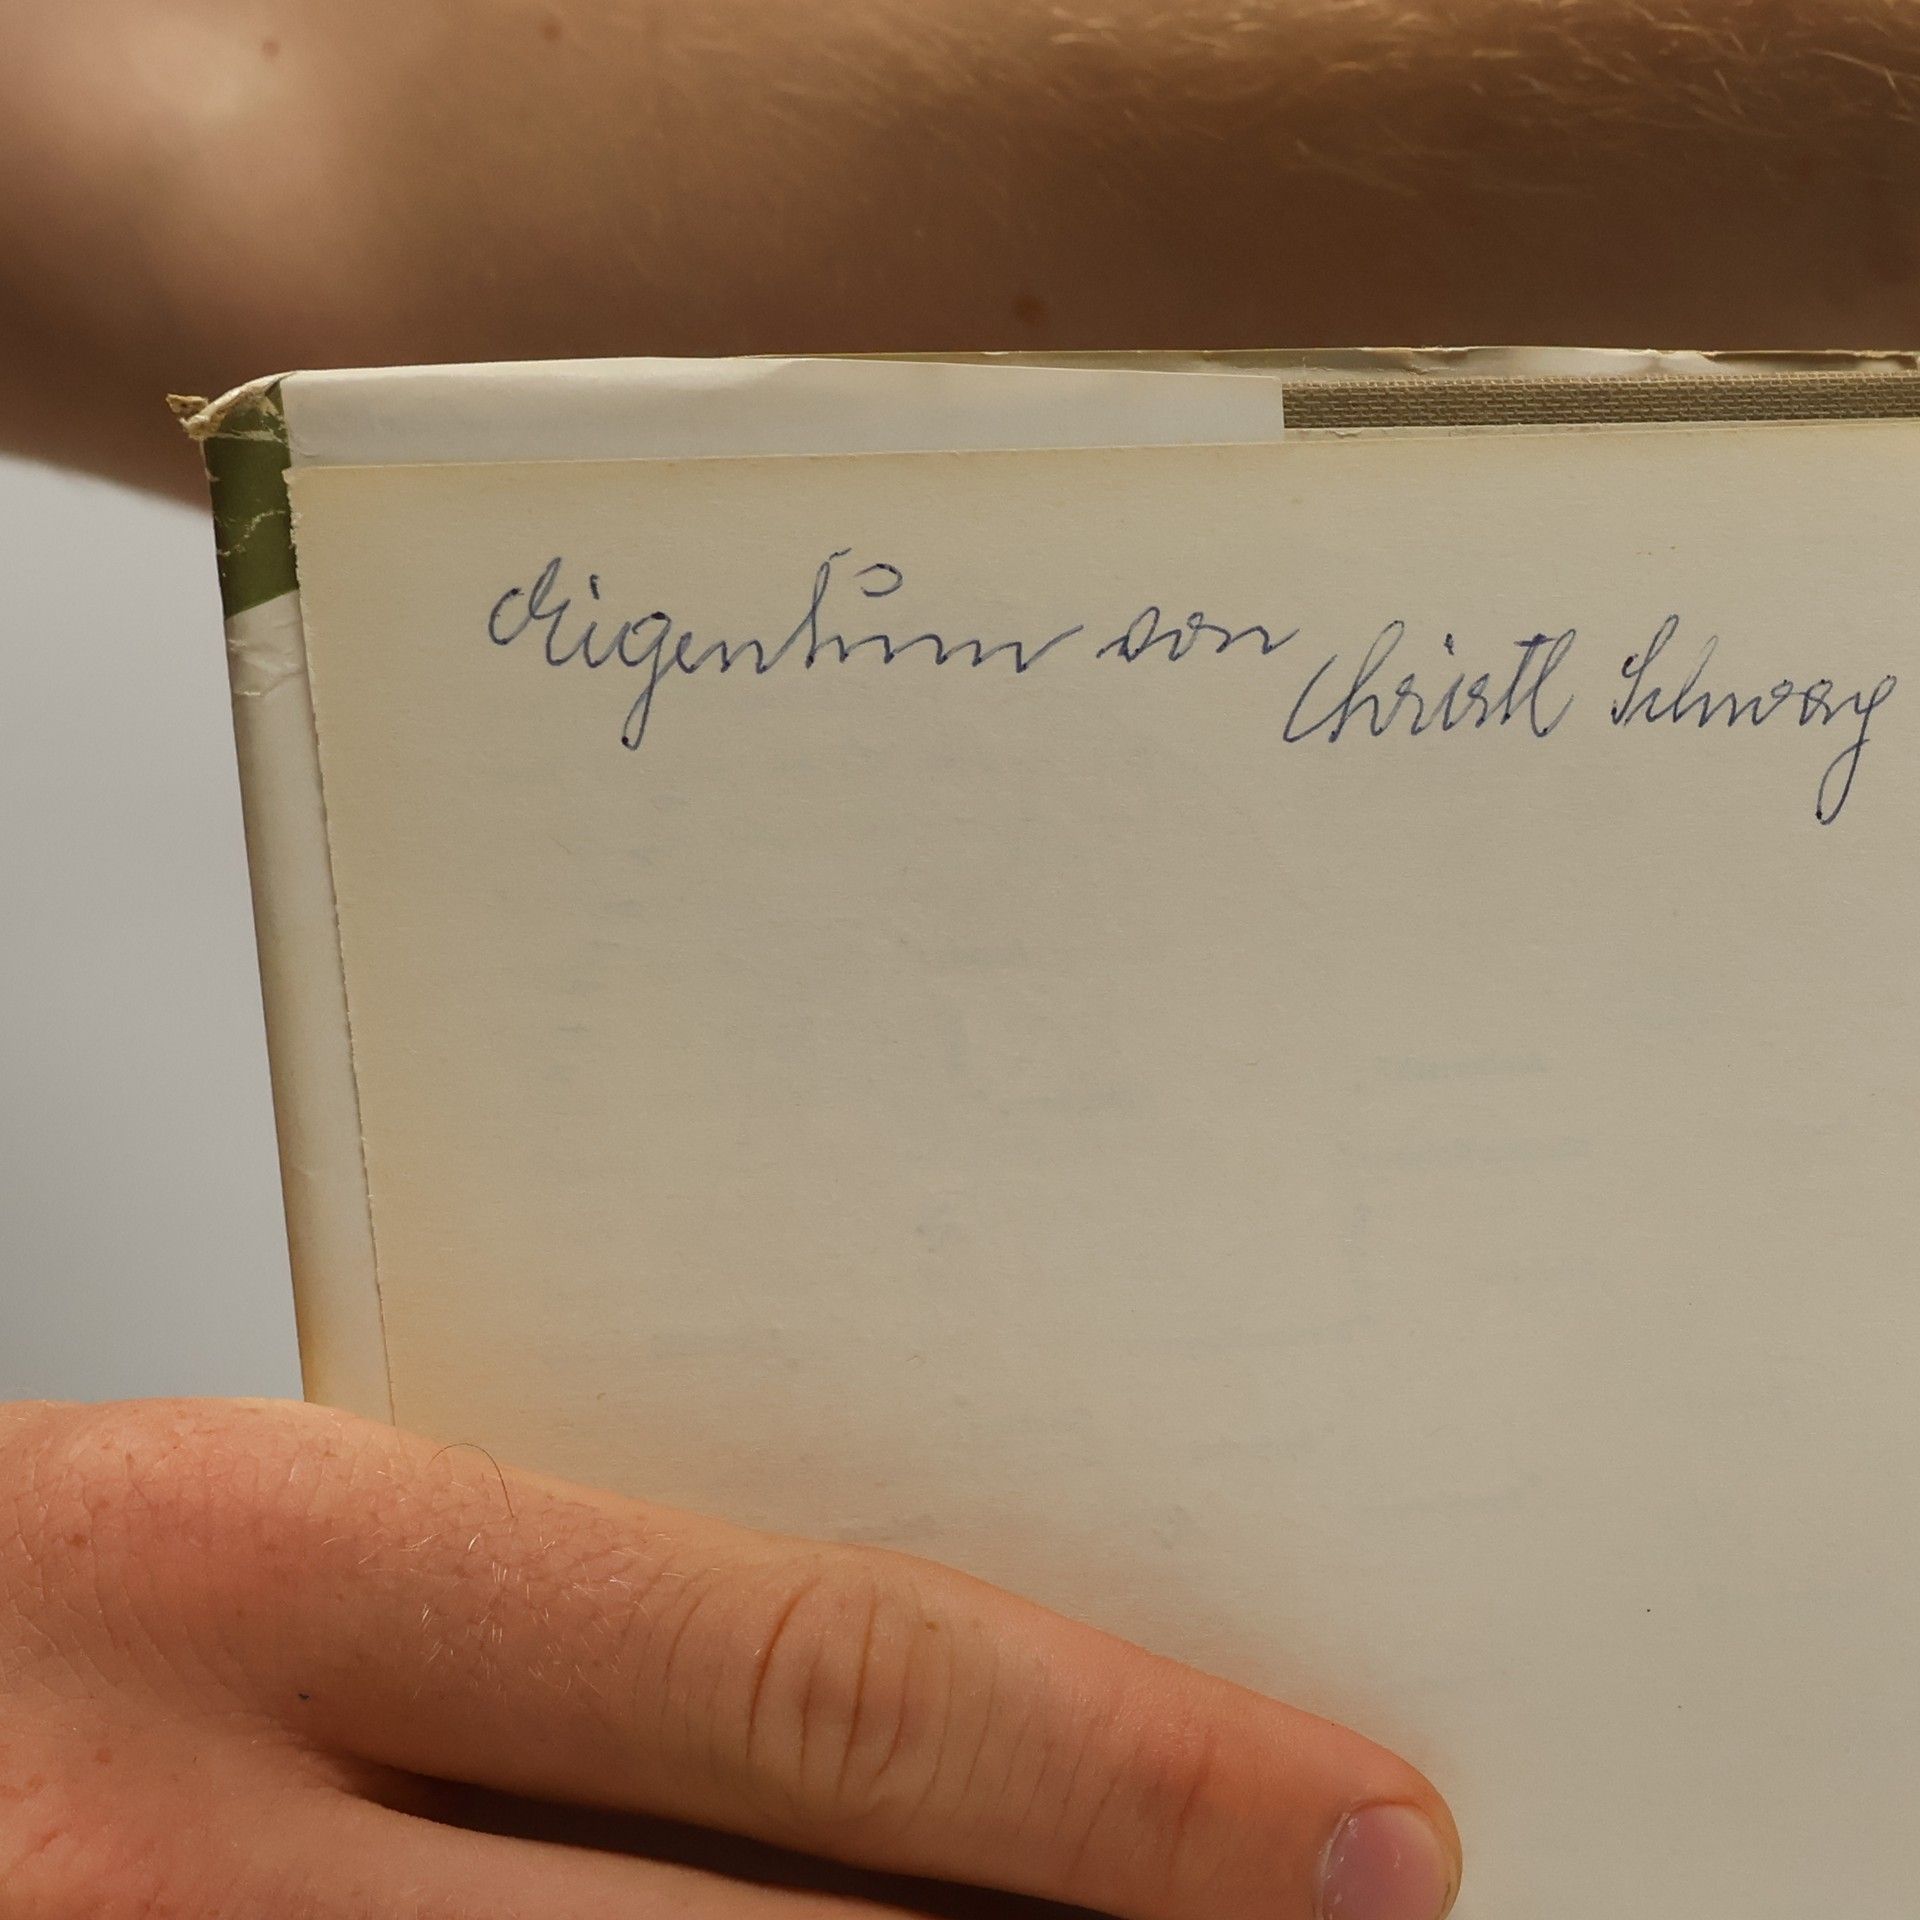 Eigentum von
Christl Schwarz